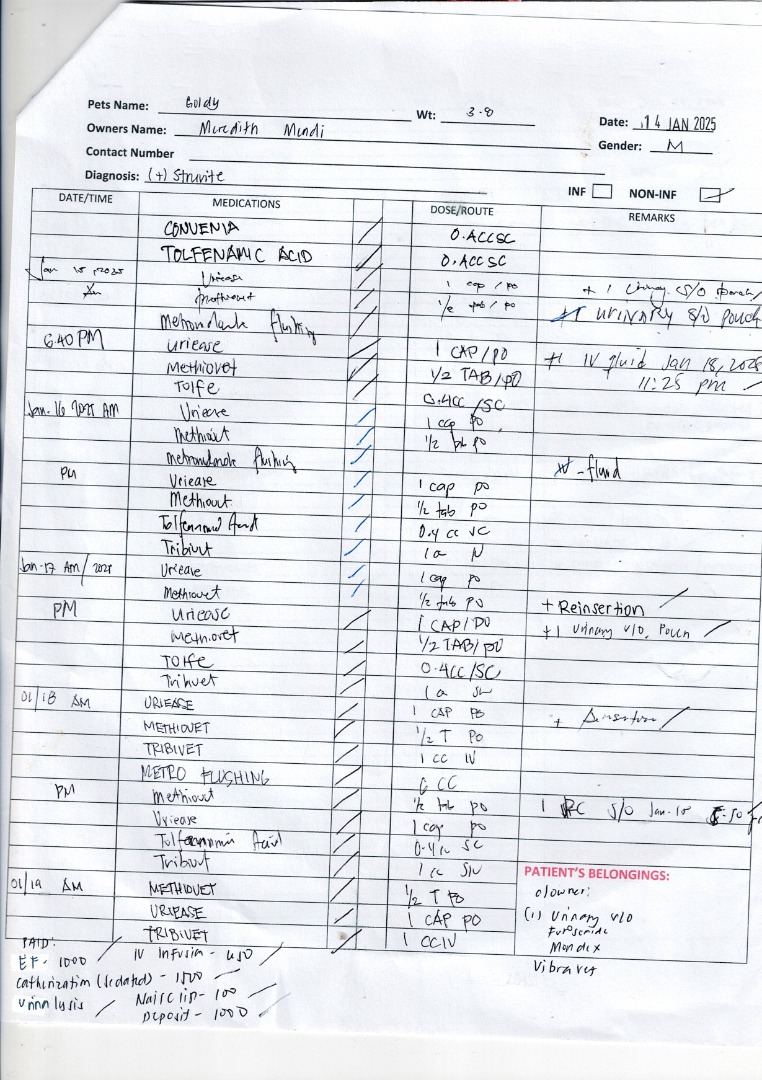 Pets Name: Goldy Wt: 3.8
Date: 14 JAN 2025
Owners Name: Meredith Mendi
Gender: M
Contact Number
Diagnosis: (+) Struvite
INF NON-INF
DATE/TIME MEDICATIONS DOSE/ROUTE REMARKS
CONVENIA 0.4CC SC
TOLFENAMIC ACID 0.4CC SC
Jan 15, 2025 Uriease 1 cap / po + 1 Urinary S/O
Methiovet 1/2 tab / po
Metronidazole flushing +1 URINARY S/O POUCH
6:40 PM Uriease 1 CAP/PO
Methiovet 1/2 TAB/PO +1 IV fluid Jan 18, 2025
Tolfe 0.4CC/SC 11:25 pm
Jan. 16 2025 AM Uriease 1 cap po
Methiovet 1/2 tab po
Metronidazole flushing
PM Uriease 1 cap po
Methiovet 1/2 tab po
Tolfenamic Acid 0.4 cc SC
Tribivet
Jan-17 AM/2025 Uriease 1 cap po
Methiovet 1/2 tab po + Reinsertion
PM Uriease 1 CAP/PO +1 Urinary Pouch
Methiovet 1/2 TAB/PO
Tolfe 0.4CC/SC
Tribivet
01/18 AM URIEASE 1 CAP PO
METHIOVET 1/2 T PO
TRIBIVET 1 CC IV
METRO FLUSHING CC
PM Methiovet 1/2 tab po
Uriease 1 cap po
Tolfenamic Acid 0.4cc SC
Tribivet 1 cc
01/19 AM METHIOVET 1/2 T PO
URIEASE 1 CAP PO
TRIBIVET 1 CC IV
PATIENT'S BELONGINGS:
owner:
(1) Urinary
Furosemide
Mondex
Vibravet
PAID:
EF - 1000 IV Infusion - 450
Catherization (sedated) - 1500
Urinalysis Nail clip - 100
Deposit - 1000